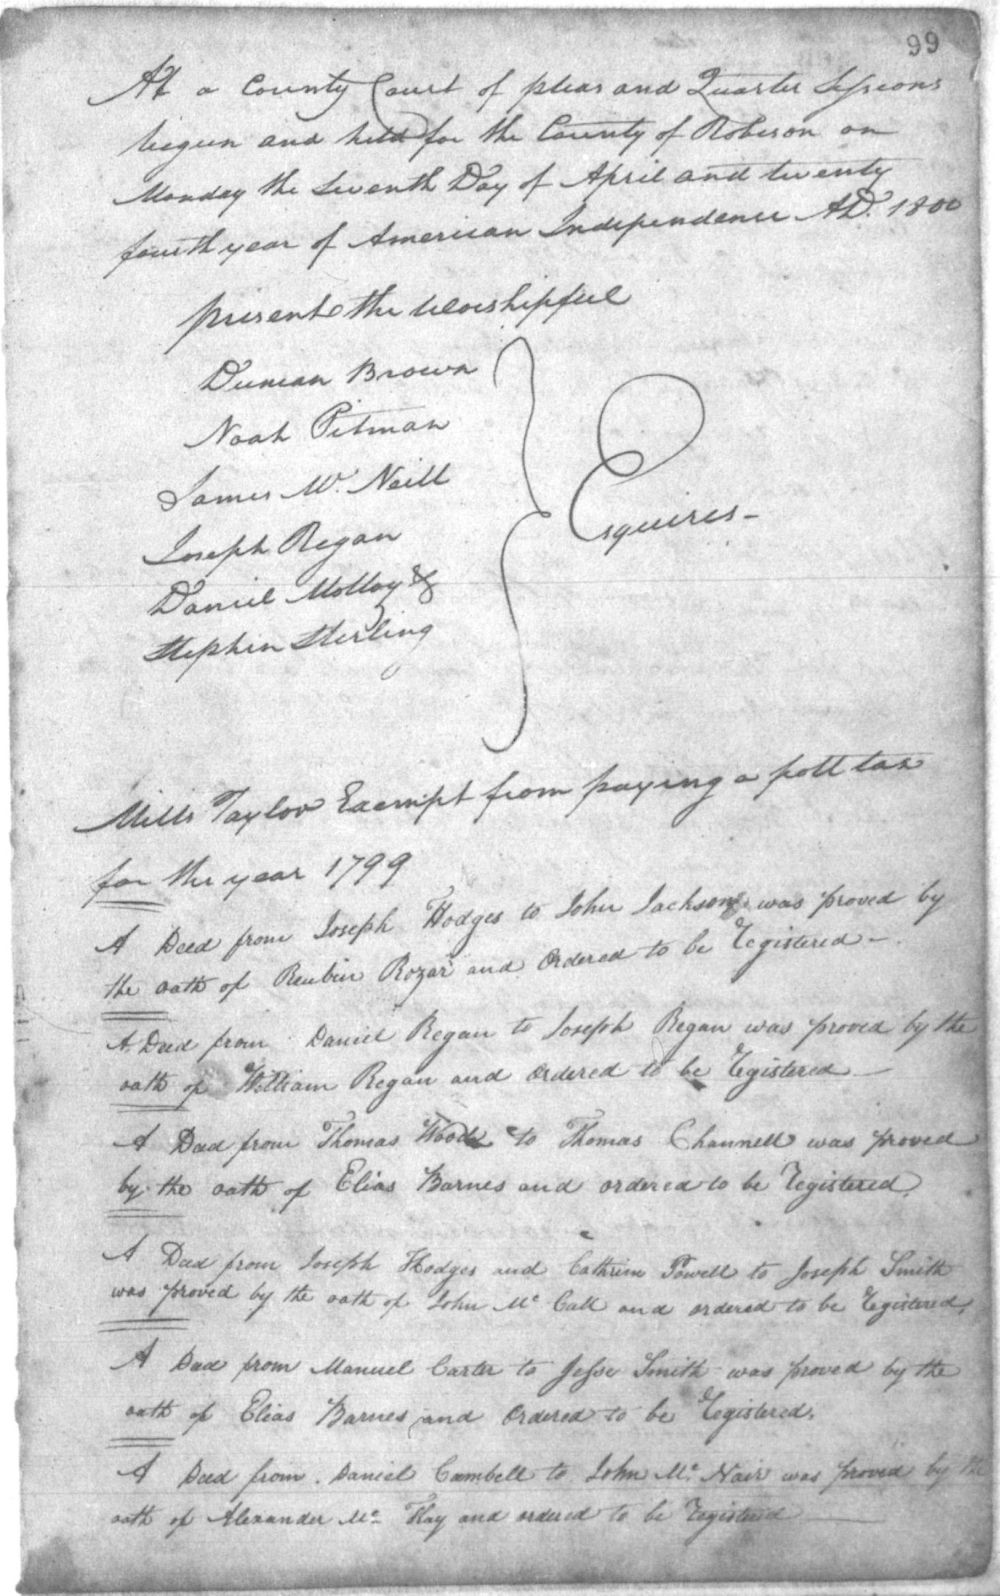 99
At a County Court of pleas and Quarter Sessions
begun and held for the County of Robeson on
Monday the Seventh Day of April and twenty
fourth year of American Independence AD. 1800
present the worshipful
Duncan Brown
Noah Pitman
James Mc. Neill
Joseph Regan
Daniel Molloy &
Stephen Sterling
Esquires -
Mills Taylor Exempt from paying a poll tax
for the year 1799
A Deed from Joseph Hodges to John Jackson was proved by
the oath of Reubin Rozar and Ordered to be Registered -
A Deed from Daniel Regan to Joseph Regan was proved by the
oath of William Regan and ordered to be Registered -
A Deed from Thomas to Thomas Channell was proved
by the oath of Elias Barnes and ordered to be Registered
A Deed from Joseph Hodges and Cathrin Powell to Joseph Smith
was proved by the oath of John Mc Call and ordered to be Registered,
A Deed from Manuel Carter to Jesse Smith was proved by the
oath of Elias Barnes and Ordered to be Registered.
A Deed from Daniel Cambell to John Mc. Nair was proved by the
oath of Alexander Mc Kay and ordered to be Registered